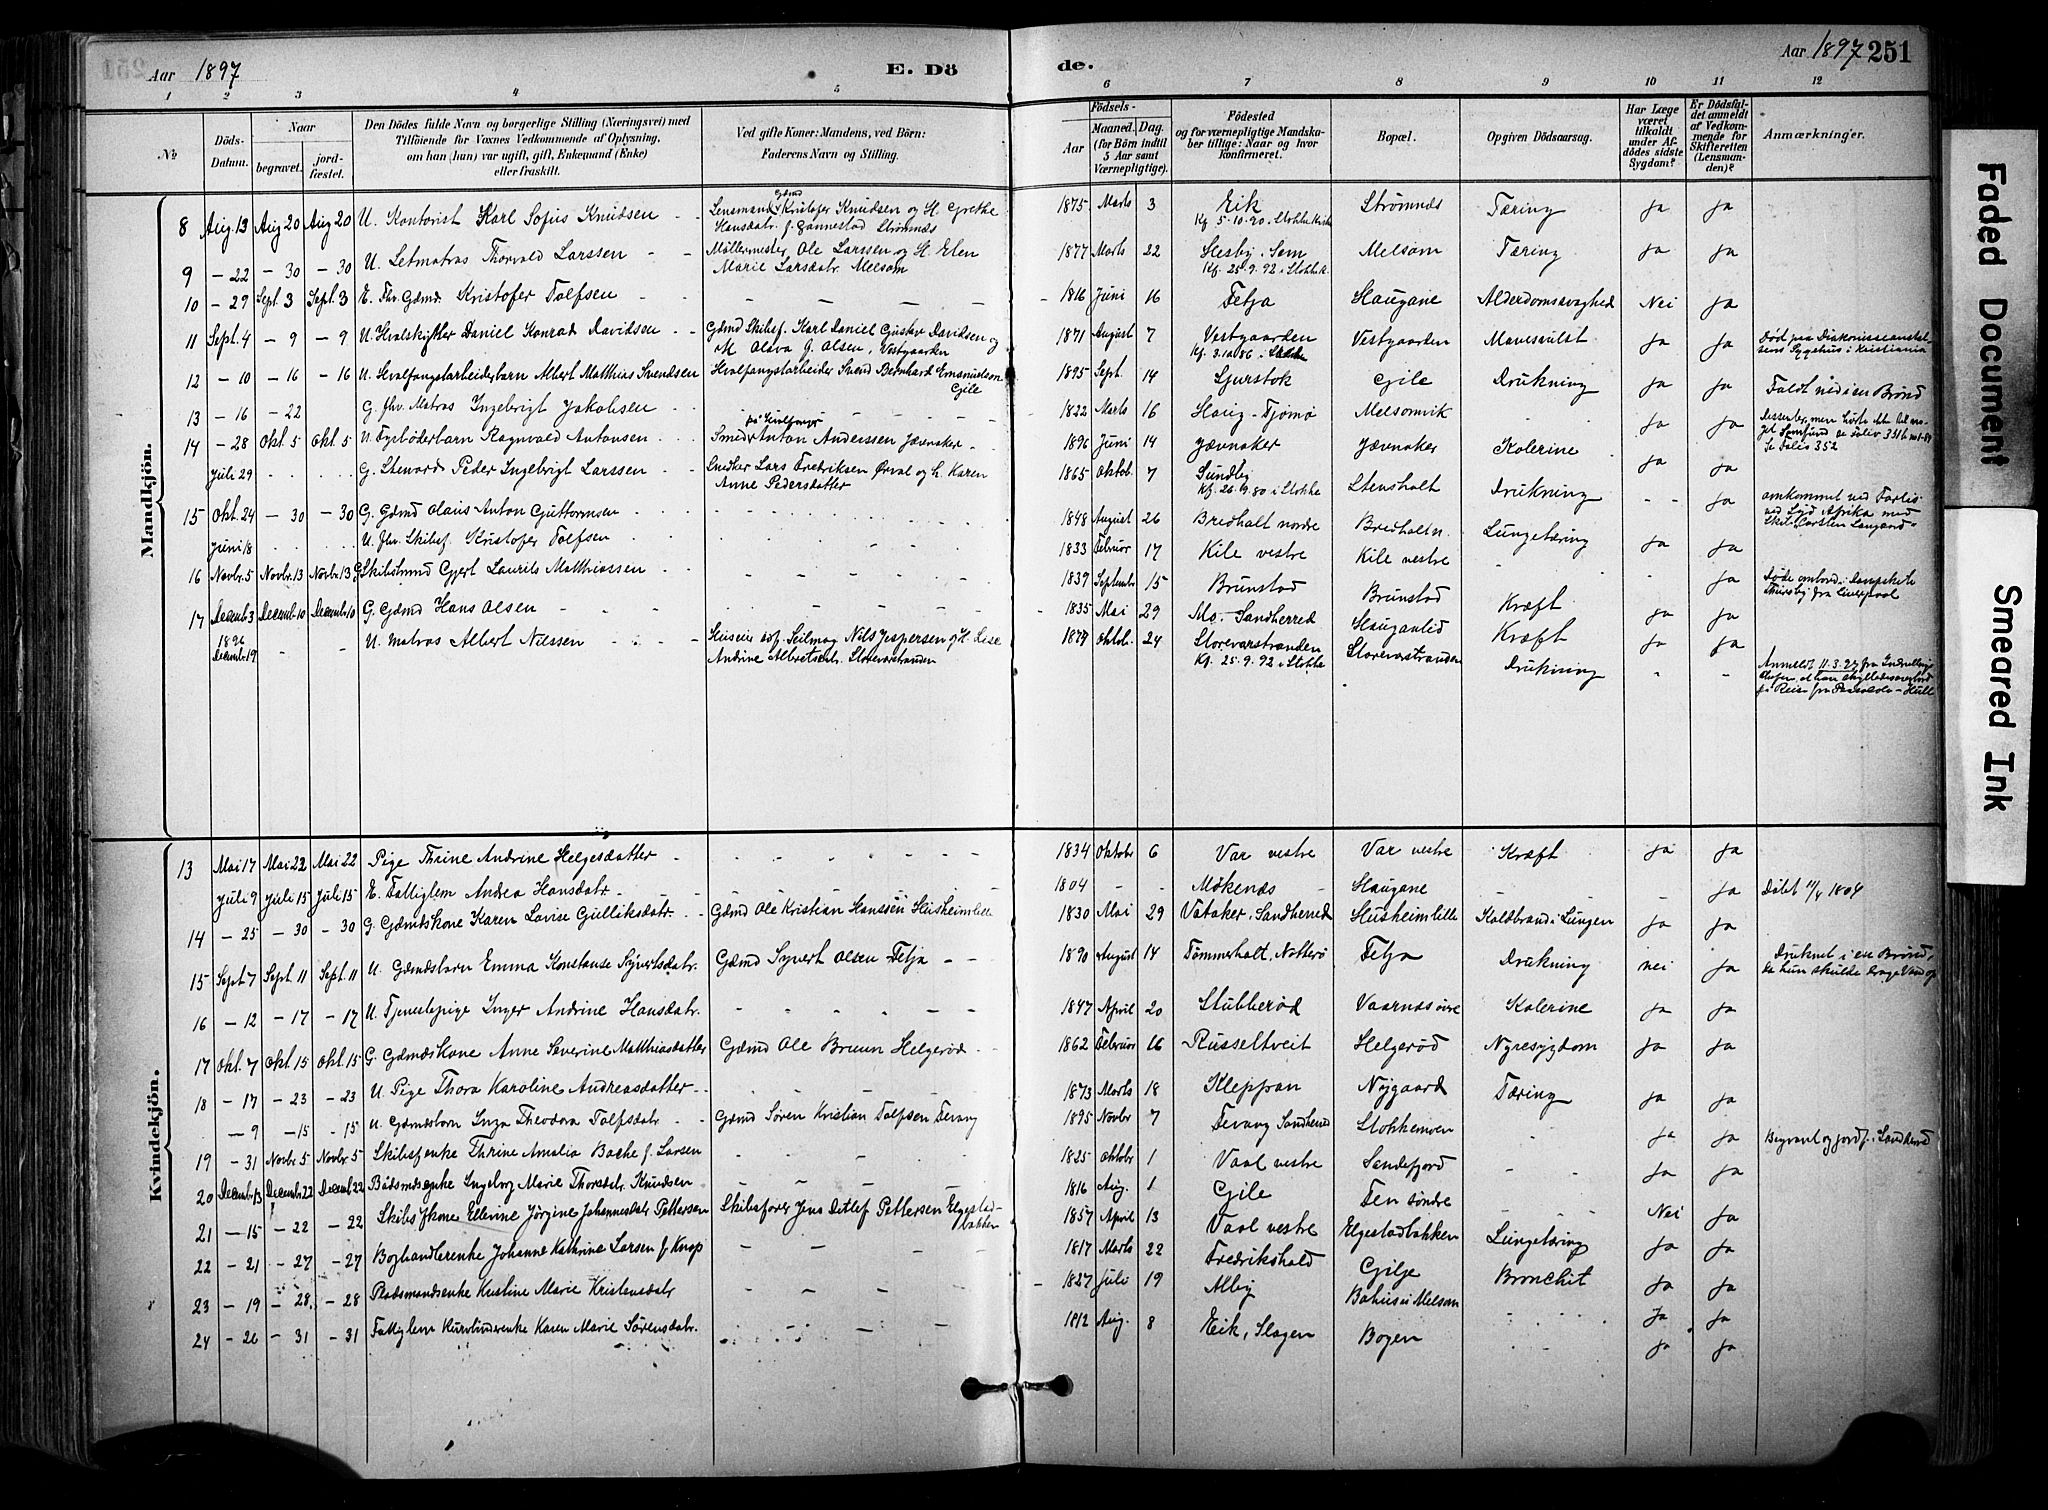 Aar 1897 E. Dö de. Aar 1897 251
1 2 3 4 5 6 7 8 9 10 11 12
No Döds-Datum. Naar begravet. jord-fæstet. Den Dödes fulde Navn og borgerlige Stilling (Næringsvei) med Tilföiende for Voxnes Vedkommende af Oplysning, om han (hun) var ugift, gift, Enkemand (Enke) eller fraskilt. Ved gifte Koner: Mandens, ved Börn: Faderens Navn og Stilling. Födsels- Aar Maaned. Dag. (for Börn indtil 5 Aar samt Værnepligtige). Födested og for værnepligtige Mandskaber tillige: Naar og hvor konfirmeret. Bopæl. Opgiven Dödsaarsag. Har Læge været tilkaldt under Afdödes sidste Sygdom? Er Dödsfaldet anmeldt af Vedkommende for Skifteretten (Lensmanden)? Anmærkninger.
Mandkjön.
8 Aug. 13 Aug 20 Aug 20 U. Kontorist Karl Sofus Knudsen Lensmand Gdmd Kristofer Knudsen og H. Grethe Hansdatr. f. Gannestad Strømnæs 1875 Marts 3 Eik Kf. 5.10.90 i Stokke Kirke Strømnæs Tæring ja ja
9 - 22 - 30 - 30 U. Letmatros Thorvald Larssen Möllermester Ole Larssen og H. Elen Marie Larsdatr. Melsom 1877 Marts 22 Slesby i Sem Kf. 25.9.92 i Stokke K. Melsom Tæring ja ja
10 - 29 Sept. 3 Sept. 3 E. Fhv. Gdmd. Kristofer Tolfsen 1816 Juni 16 Fetja Haugane Alderdomssvaghed Nei ja
11 Sept. 4 - 9 - 9 U. Hvalskytter Daniel Konrad Davidsen Gdmd Skibsf. Karl Daniel Gustav Davidsen og M. Olava f. Olsen, Vestgaarden 1871 August 7 Vestgaarden Kf. 3.10.86 i Stokke Vestgaarden Mavesvulst ja ja Død paa Diakonisseanstaltens Sygehus i Kristiania
12 - 10 - 16 - 16 U. Hvalfangstarbeiderbarn Albert Matthias Svendsen Hvalfangstarbeider Svend Bernhard Emanuelsen Gile 1895 Sept. 14 Sjurstok Gile Drukning ja ja Faldt ned i en Brønd
13 - 16 - 22 G. fhv. Matros Ingebrigt Jakobsen 1822 Marts 16 Haug - Tjømø Melsomvik ja ja
14 - 28 Okt 5 Okt 5 U. Fyrbøderbarn Ragnvald Antonsen Smed Anton Anderssen Jævnaker 1896 Juni 14 Jævnaker Jævnaker Kolerine ja ja Se Folio 352
Juli 29 G. Steward Peder Ingebrigt Larssen Snedker Lars Fredriksen Ørval og h. Karen Anne Pedersdatter 1865 Oktob. 7 Sundby Kf. 26.9.80 i Stokke Stensholt Drukning ja omkommet ved Forlis ved Syd Afrika med Skib "Carsten Langaard"
15 Okt. 24 - 30 - 30 G. Gdmd Olaus Anton Guttormsen 1848 August 26 Bredholt nordre Bredholt n. Lungetæring ja ja
Juni 18 U. fhv. Skibsf. Kristofer Tolfsen 1833 Februar 17 Kile vestre Kile vestre ja
16 Novbr. 5 Novbr. 13 Novbr. 13 G. Skibstmd Gjert Laurits Matthiassen 1839 Septembr 15 Brunstad Brunstad Kræft ja ja
17 Decemb. 3 Decemb. 10 Decemb. 10 G. Gdmd Hans Olsen 1835 Mai 29 Mo, Sandherred Haugantid Kræft ja ja
1896 Decembr. 19 U. Matros Albert Nilssen Huseier og Seilmag Nils Jespersen og H. Lise Andrine Albretsdatr. Storevarstranden 1877 Oktob. 24 Storevarstranden Kf. 25.9.92 i Stokke Storevarstranden Drukning Anmeldt 11.3.97 fra Indrullerings-Chefen, at han skylledes overbord paa Reise fra Pensacola - Hull
Kvindekjön.
13 Mai 17 Mai 22 Mai 22 Pige Thrine Andrine Helgesdatter 1834 Oktobr 6 Var vestre Var vestre Kræft ja ja
Juli 9 Juli 15 Juli 15 E. Fattiglem Andrea Hansdatr. 1804 Møkenæs Haugane ja Døbt 11/4 1804
14 - 25 - 30 - 30 G. Gdmdskone Karen Lovise Gulliksdatr Gdmd Ole Kristian Hanssen Husheimlille 1830 Mai 29 Vataker i Sandherred Husheimlille Koldbrand i Lungen ja ja
15 Sept 7 Sept 11 Sept. 11 U. Gdmdsbarn Emma Konstanse Syvertsdatr. Gdmd Syvert Olsen Fetja 1890 August 14 Tømmerholt, Nøtterø Fetja Drukning nei ja Druknet i en Brønd, da hun skulde drage Vand op
16 - 12 - 17 - 17 U. Tjenestepige Inger Andrine Hansdatr. 1847 April 20 Stubberød Vaarnæs øvre Kolerine ja ja
17 Okt. 7 Okt 15 Okt 15 G. Gdmdskone Anne Severine Matthiasdatter Gdmd Ole Bruun Helgerød 1862 Februar 16 Russeltveit Helgerød Nyresygdom ja ja
18 - 17 - 23 - 23 U. Pige Thora Karoline Andreasdatter 1873 Marts 18 Kleppan Nygaard Tæring ja ja
- 9 - 15 - 15 U. Gdmdsbarn Inga Theodora Tolfsdatr Gdmd Søren Kristian Tolfsen Fevang 1895 Novbr 7 Fevang Sandherred Stokkemoen ja ja Begravet og jordf. i Sandherred
19 - 31 Novbr. 5 Novbr. 5 Skibsf.enke Thrine Amalia Bache f. Larsen 1825 Oktobr 1 Vaal vestre Sandefjord ja ja
20 Decembr 13 Decembr 22 Decembr 22 Baadsmdsenke Ingeborg Marie Thorsdatr. Knudsen 1816 Aug. 1 Gile Fen søndre Nei ja
21 - 15 - 22 - 22 Skibsf.kone Ellevine Jörgine Johannesdatr Pettersen Skibsfører Jens Detlef Pettersen Elgestadbakken 1857 April 13 Vaal vestre Elgestadbakken Lungetæring ja ja
22 - 21 - 27 - 27 Boghandlerenke Johanne Kathrine Larsen f. Knop 1817 Marts 22 Fredrikshald Gilje Bronchit ja ja
23 - 19 - 28 - 28 Pladsmandsenke Kirstine Marie Kristensdatr 1827 Juli 19 Alby Melsom ja ja
24 - 26 - 31 - 31 Fattiglem Karen Marie Sørensdatr. 1812 Aug. 8 Eik, Slagen Bogen ja ja
Faded Document
Smeared Ink